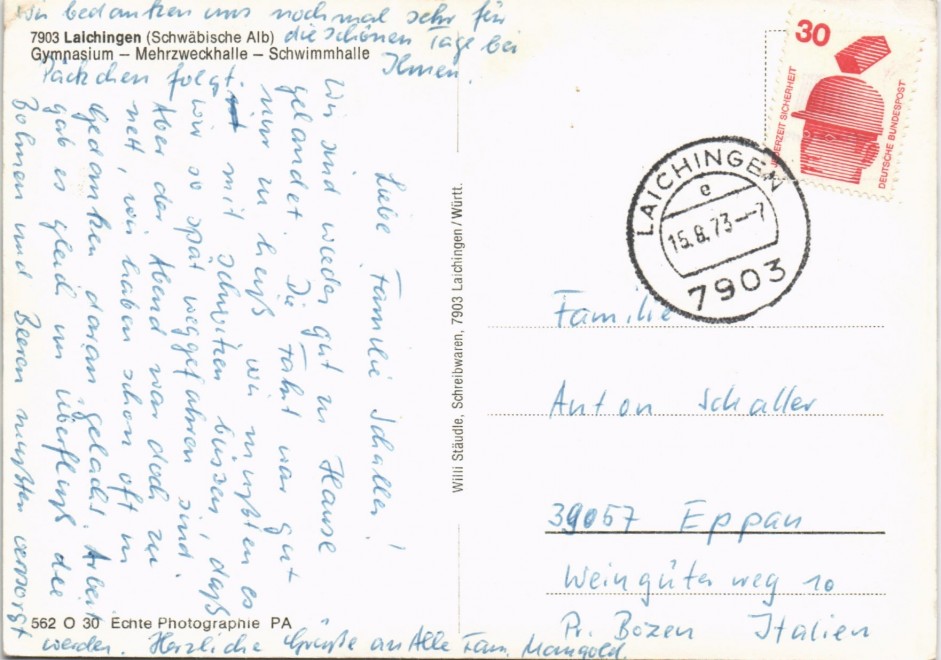 7903 Laichingen (Schwäbische Alb)
Gymnasium – Mehrzweckhalle – Schwimmhalle
Liebe Familie Schaller!
Wir sind wieder gut zu Hause
gelandet. Die Fahrt war gut
nur zu heiß wir mußten es
mit schwitzen büssen, daß
wir so spät weggefahren sind.
Aber der Abend war doch zu
nett, wir haben schon oft in
Gedanken daran gedacht. Arbeit
gab es gleich im Überfluß die
Bohnen und Beeren mußten versorgt
werden. Herzliche Grüße an Alle Fam. Mangold.
Wir bedanken uns nochmal sehr für
die schönen Tage bei
Ihnen.
Päckchen folgt.
562 O 30 Echte Photographie PA
Willi Stäudle, Schreibwaren, 7903 Laichingen / Württ.
30
JEDERZEIT SICHERHEIT
DEUTSCHE BUNDESPOST
LAICHINGEN
e
15.8.73--7
7903
Familie
Anton Schaller
39057 Eppan
Weingüterweg 10
Pr. Bozen Italien